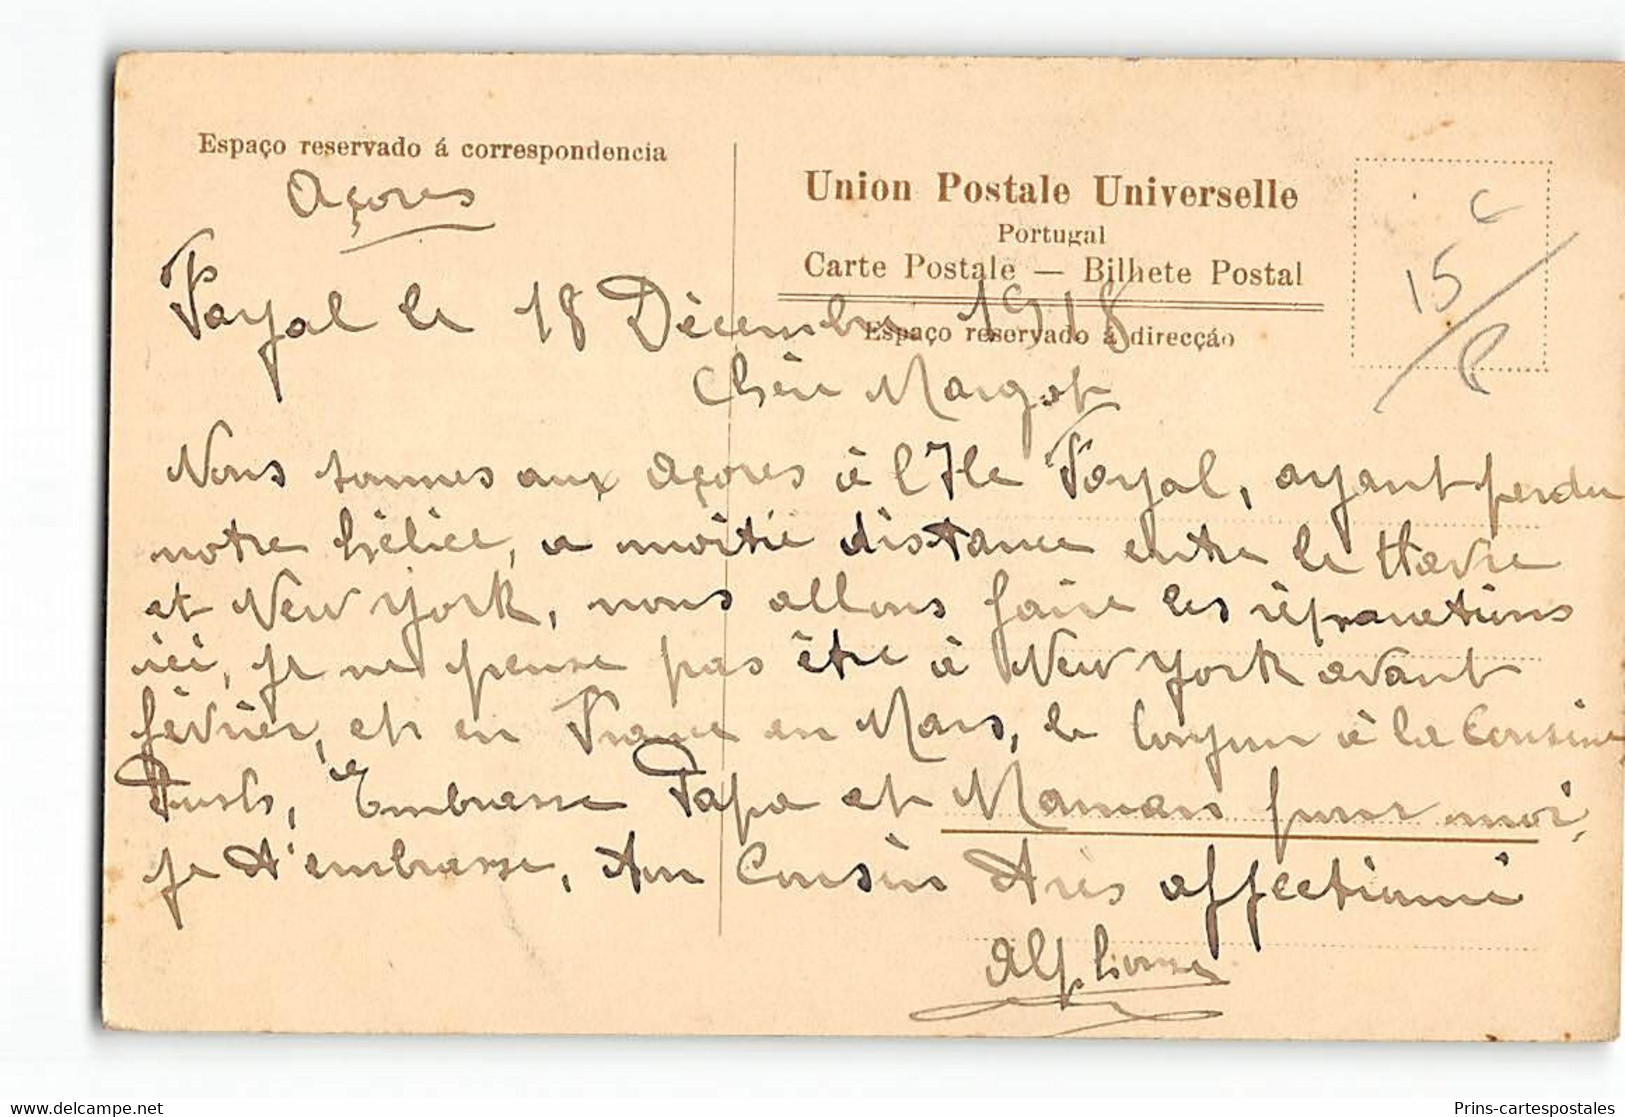 Espaço reservado á correspondencia
Açores
Union Postale Universelle
Portugal
Carte Postale — Bilhete Postal
Espaço reservado á direcção
15 c
Fayal le 18 Décembre 1918
Chère Margot
Nous sommes aux Açores à l'Ile Fayal, ayant perdu
notre hélice, a moitié distance entre le Havre
et New York, nous allons faire les réparations
ici, je ne pense pas être à New York avant
février, et en France en Mars, le bonjour à la Cousine
Embrasse Papa et Maman pour moi,
je t'embrasse, ton Cousin très affectionné
Alphonse
Prins-cartespostales
www.delcampe.net